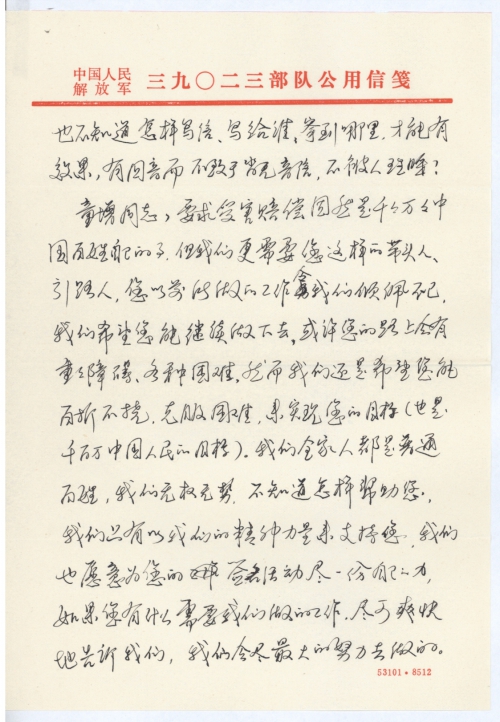 中国人民解放军 三九〇二三部队公用信笺
也不知道怎样写信、写给谁、寄到哪里,才能有
效果,有回音而不致于杳无音信,不被人理睬?
童增同志,要求受害赔偿固然是千千万万中
国百姓自己的事,但我们更需要您这样的带头人、
引路人,您以前所做的工作令我们倾佩不已,
我们希望您能继续做下去,或许您的路上会有
重重障碍、各种困难,然而我们还是希望您能
百折不挠,克服困难,来实现您的目标(也是
千百万中国人民的目标)。我们全家人都是普通
百姓,我们无权无势,不知道怎样帮助您,
我们只有以我们的精神力量来支持您,我们
也愿意为您的签名活动尽一份自己之力,
如果您有什么需要我们做的工作,尽可爽快
地告诉我们,我们会尽最大的努力去做的。
53101·8512